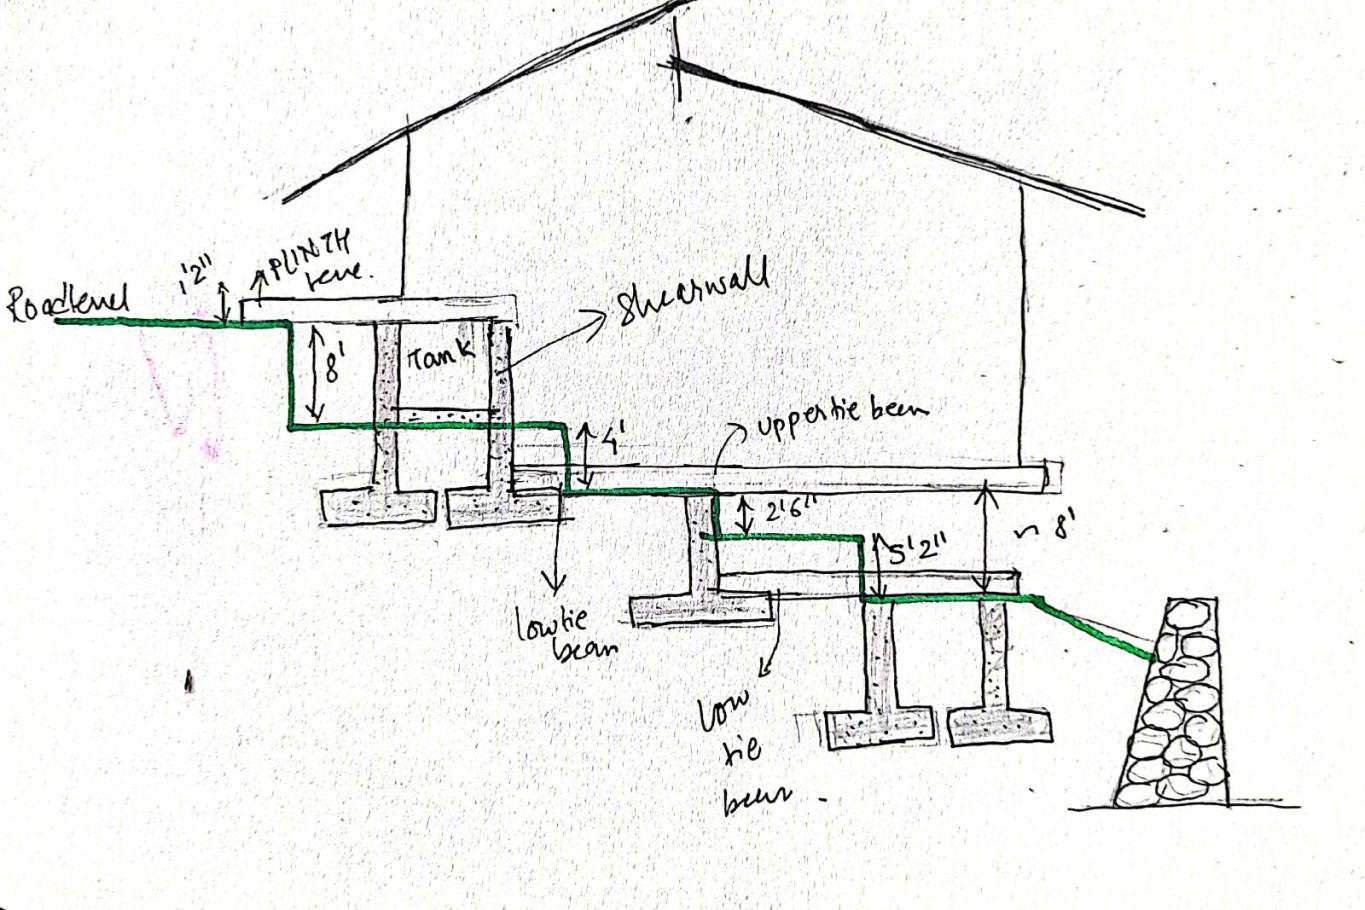 1'2"
PLINTH
level.
Roadlevel
8'
Tank
Shearwall
4'
uppertie beam
2'6"
5'2"
~ 8'
lowtie
beam
Low
tie
beam.